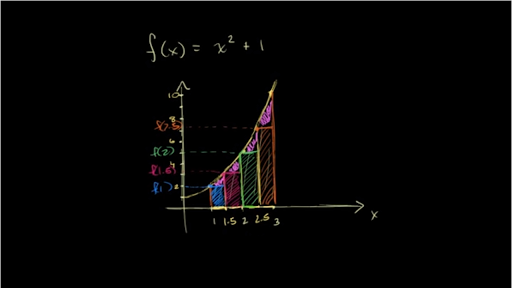 f(x) = x² + 1
10
8
f(2.5)
6
f(2)
4
f(1.5)
f(1) 2
1 1.5 2 2.5 3
x